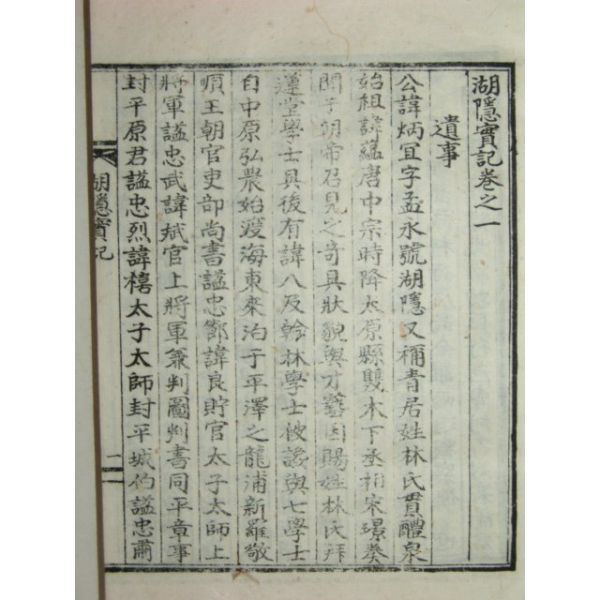 湖隱實記卷之一
遺事
公諱炳冝字孟永號湖隱又稱青居姓林氏貫醴泉
始祖諱蘊唐中宗時降太原縣雙木下丞相宋璟奏
聞于朝帝召見之奇具狀貌與才藝因賜姓林氏拜
蓮堂學士具後有諱八及翰林學士被讒與七學士
自中原弘農始渡海東來泊于平澤之龍浦新羅敬
順王朝官吏部尚書謚忠節諱良貯官太子太師上
將軍謚忠武諱斌官上將軍兼判圖判書同平章事
封平原君謚忠烈諱禧太子太師封平城伯謚忠簡
湖隱實記
一